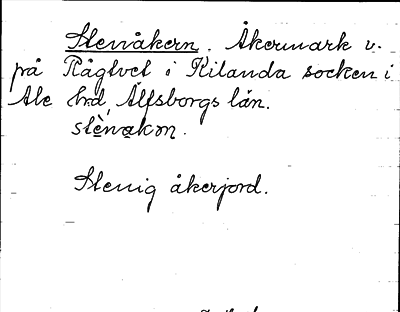 Stenåkern. Åkermark v.
på Rågtvet i Kilanda socken i
Ale hrd, Älfsborgs län.
stènakɷn.
Stenig åkerjord.